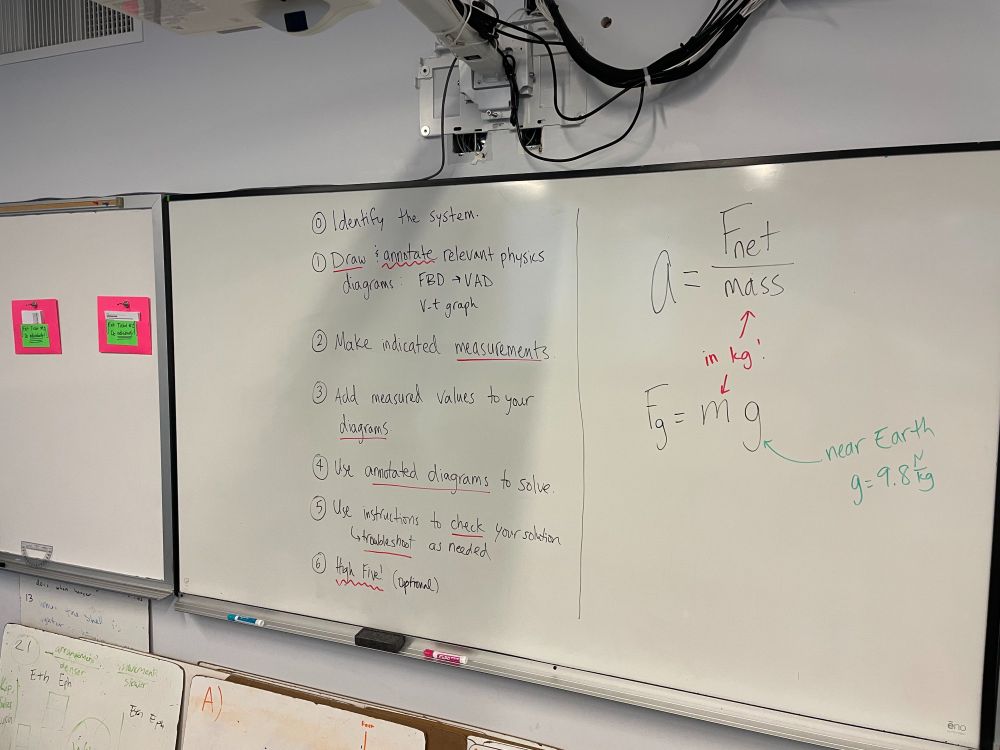 ⓪ Identify the system.
① Draw & annotate relevant physics
diagrams: FBD → VAD
v-t graph
② Make indicated measurements.
③ Add measured values to your
diagrams.
④ Use annotated diagrams to solve.
⑤ Use instructions to check your solution
↳ troubleshoot as needed
⑥ High Five! (optional)
a = Fnet
mass
in kg!
Fg = m g
near Earth
g = 9.8 N/kg
ēno
Exit Ticket
Exit Ticket
13
21)
denser
slower
Eth Eph
Eth Eph
A)